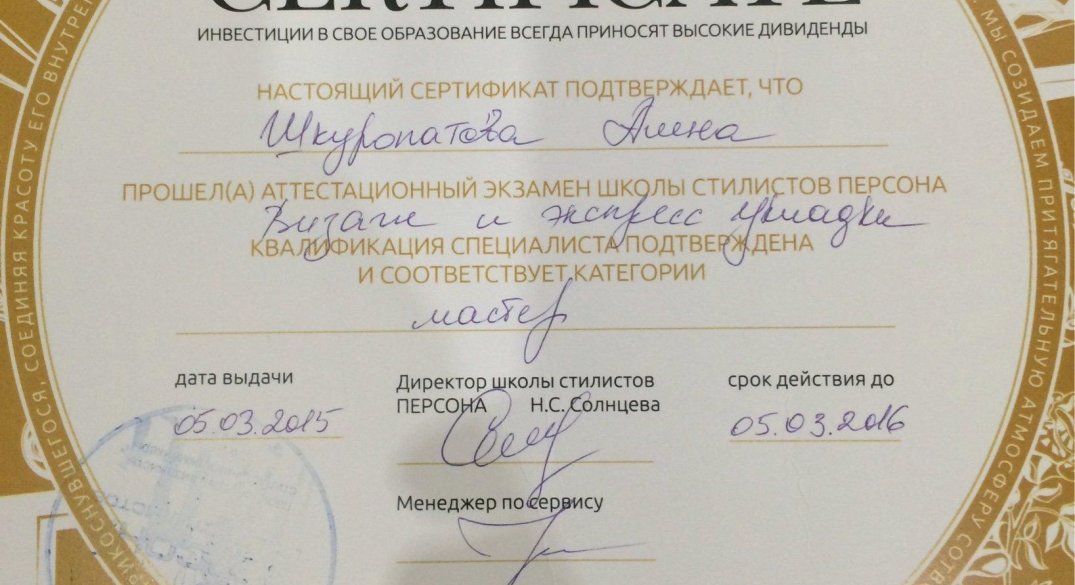 CERTIFICATE
ИНВЕСТИЦИИ В СВОЕ ОБРАЗОВАНИЕ ВСЕГДА ПРИНОСЯТ ВЫСОКИЕ ДИВИДЕНДЫ
НАСТОЯЩИЙ СЕРТИФИКАТ ПОДТВЕРЖДАЕТ, ЧТО
Шкуропатова Алина
ПРОШЕЛ(А) АТТЕСТАЦИОННЫЙ ЭКЗАМЕН ШКОЛЫ СТИЛИСТОВ ПЕРСОНА
Визаж и экспресс укладки
КВАЛИФИКАЦИЯ СПЕЦИАЛИСТА ПОДТВЕРЖДЕНА
И СООТВЕТСТВУЕТ КАТЕГОРИИ
мастер
дата выдачи
05.03.2015
Директор школы стилистов
ПЕРСОНА Н.С. Солнцева
срок действия до
05.03.2016
Менеджер по сервису
СОЕДИНЯЯ КРАСОТУ ЕГО
МЫ СОЗИДАЕМ ПРИТЯГАТЕЛЬНУЮ АТМОСФЕРУ